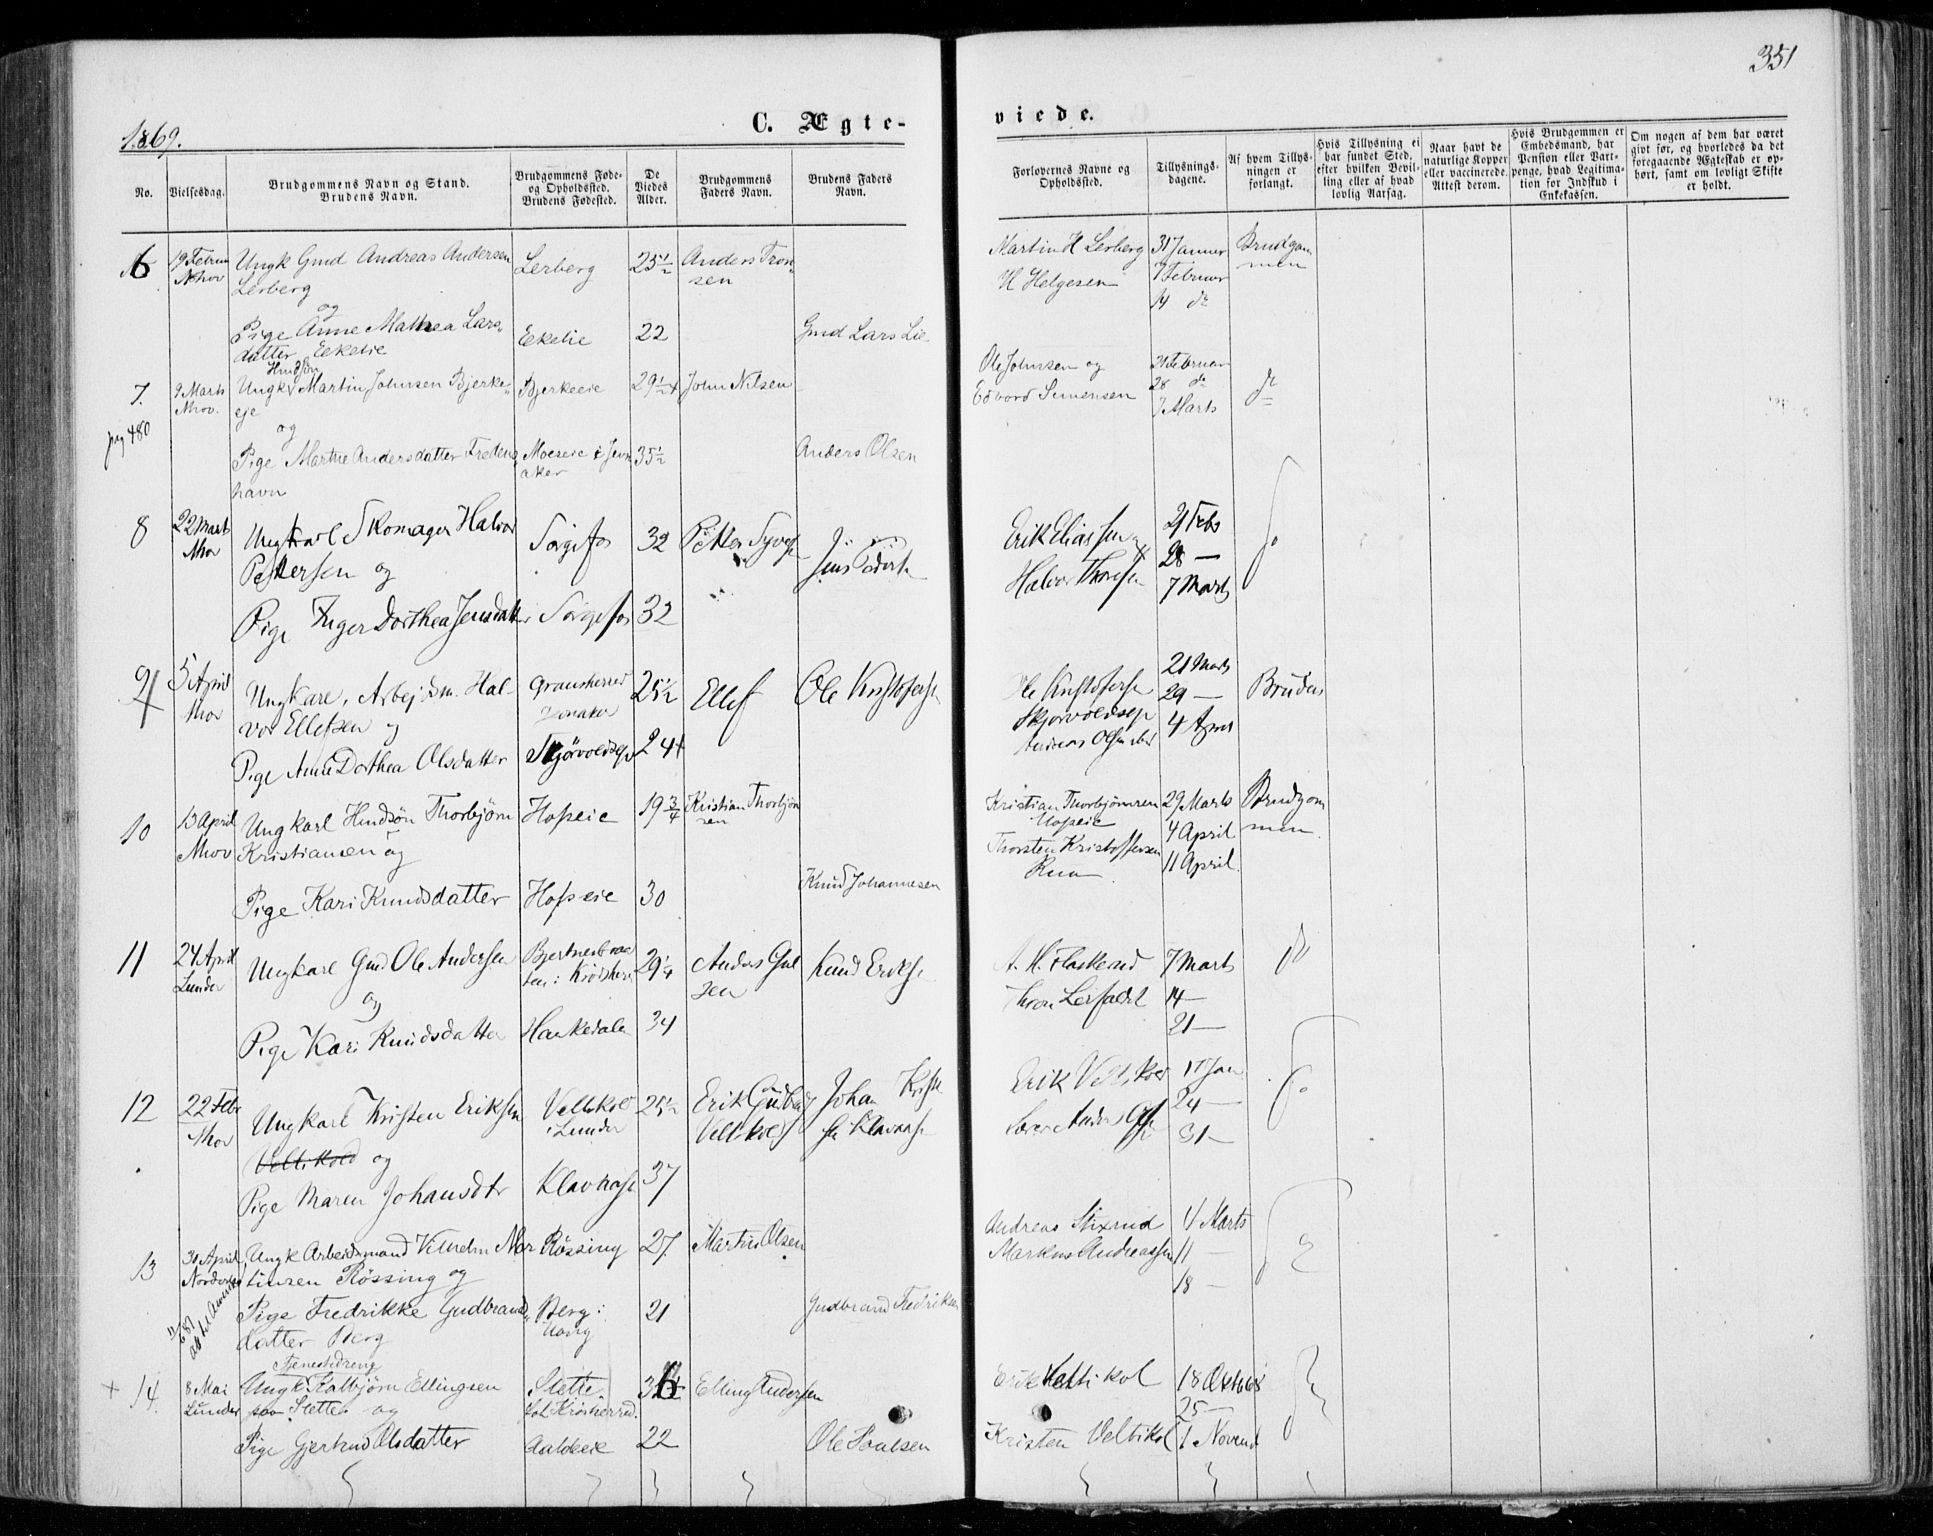 351
1869.
C. Ægte-
viede.
No.
Vielsesdag.
Brudgommens Navn og Stand.
Brudens Navn.
Brudgommens Føde-
og Opholdssted.
Brudens Fødested.
De
Viedes
Alder.
Brudgommens
Faders Navn.
Brudens Faders
Navn.
Forlovernes Navne og
Opholdssted.
Tillysnings-
dagene.
Af hvem Tillys-
ningen er
forlangt.
Hvis Tillysning ei
har fundet Sted,
efter hvilken Bevil-
ling eller af hvad
lovlig Aarsag.
Naar havt de
naturlige Kopper
eller vaccinerede.
Attest derom.
Hvis Brudgommen er
Embedsmand, har
Pension eller Vart-
penge, hvad Legitima-
tion for Indskud i
Enkekassen.
Om nogen af dem har været
givt før, og hvorledes da det
foregaaende Ægteskab er op-
hørt, samt om lovligt Skifte
er holdt.
6
19 Februar
Nhov
Ungk Gmd Andreas Andersen
Lerberg
og
Pige Anne Mathea Lars-
datter Eekelie
Lerberg
Eekelie
25 1/2
22
Anders Tron-
sen
Gmd Lars Lie
Martin H Lerberg
H Helgesen
31 Januar
7 Februar
14 do
Brudgom
men
7.
pag 480
9 Marts
Nhov.
Huusfon
Ungk Martin Johnsen Bjerke-
eje
og
Pige Marthe Andersdatter Fredens
havn
Bjerkeeie
Moeseie i Jevn
aker
29 1/4
35 1/2
John Nilsen
Anders Olsen
Ole Johnsen og
Edvard Simensen
21 Februar
28 do
7 Marts
do
8
22 Marts
Nhov
Ungkarl Skomager Halvor
Pettersen og
Pige Inger Dorthea Jensdatter
Sørgefos
Sørgefos
32
32
Petter
Jens
Erik Eliassen
Halvor Thoresen
21 Febr
28 —
7 Marts
do
9
5 April
Nhov
Ungkarl, Arbejdsm. Hal-
vor Ellefsen og
Pige Anne Dorthea Olsdatter
Granshered
Skjørvoldseje
25 1/2
24
Ellef
Ole Kristofersen
Ole Kristofersen
Skjørvoldseje
Andreas Olsen
21 Marts
29 —
4 April
Bruden
10
13 April
Nhov
Ungkarl Huusfon Thorbjørn
Kristiansen og
Pige Kari Knudsdatter
Hofseie
Hofseie
19 3/4
30
Kristian Thorbjørn
sen
Knud Johannesen
Kristian Thorbjørnsen
Hofseie
Thorsten Kristoffersen
Rua
29 Marts
4 April
11 April
Brudgom
men
11
24 April
Lunder
Ungkarl Gmd Ole Andersen
og
Pige Kari Knudsdatter
i Krødsherr
Haukedalen
29 1/4
34
Anders Gul
sen
Knud Eriksen
A. H. Flaskerud
Thron
7 Marts
14 —
21 —
do
12
22 Febr
Nhov
Ungkarl Kristen Eriksen
Veltikold og
Pige Maren Johansdtr
Veltikold
i Lunder
25 1/2
37
Erik Gudbra
Veltikold
Johan
Erik Veltikold
17 Jan
24 —
31 —
do
13
30 April
Norderhov
Ungk Arbeidsmand Vilhelm Mar
tinsen Røssing og
Pige Fredrikke Gudbrands-
datter Berg
Røssing
Berg i
Haug
27
21
Martin Olsen
Gudbrand Fredriksen
Andreas Stixrud
Markus Andreassen
4 Marts
11 —
18 —
+ 14.
8 Mai
Lunder
Tjenestedreng
Ungk Kolbjørn Ellingsen
Slette og
Pige Gjertrud Olsdatter
Slette
i Krødsherred.
36
22
Elling Andersen
Ole Paalsen
Erik Veltikol
Kristen Veltikol
18 Oktober
25 —
1 Novemb